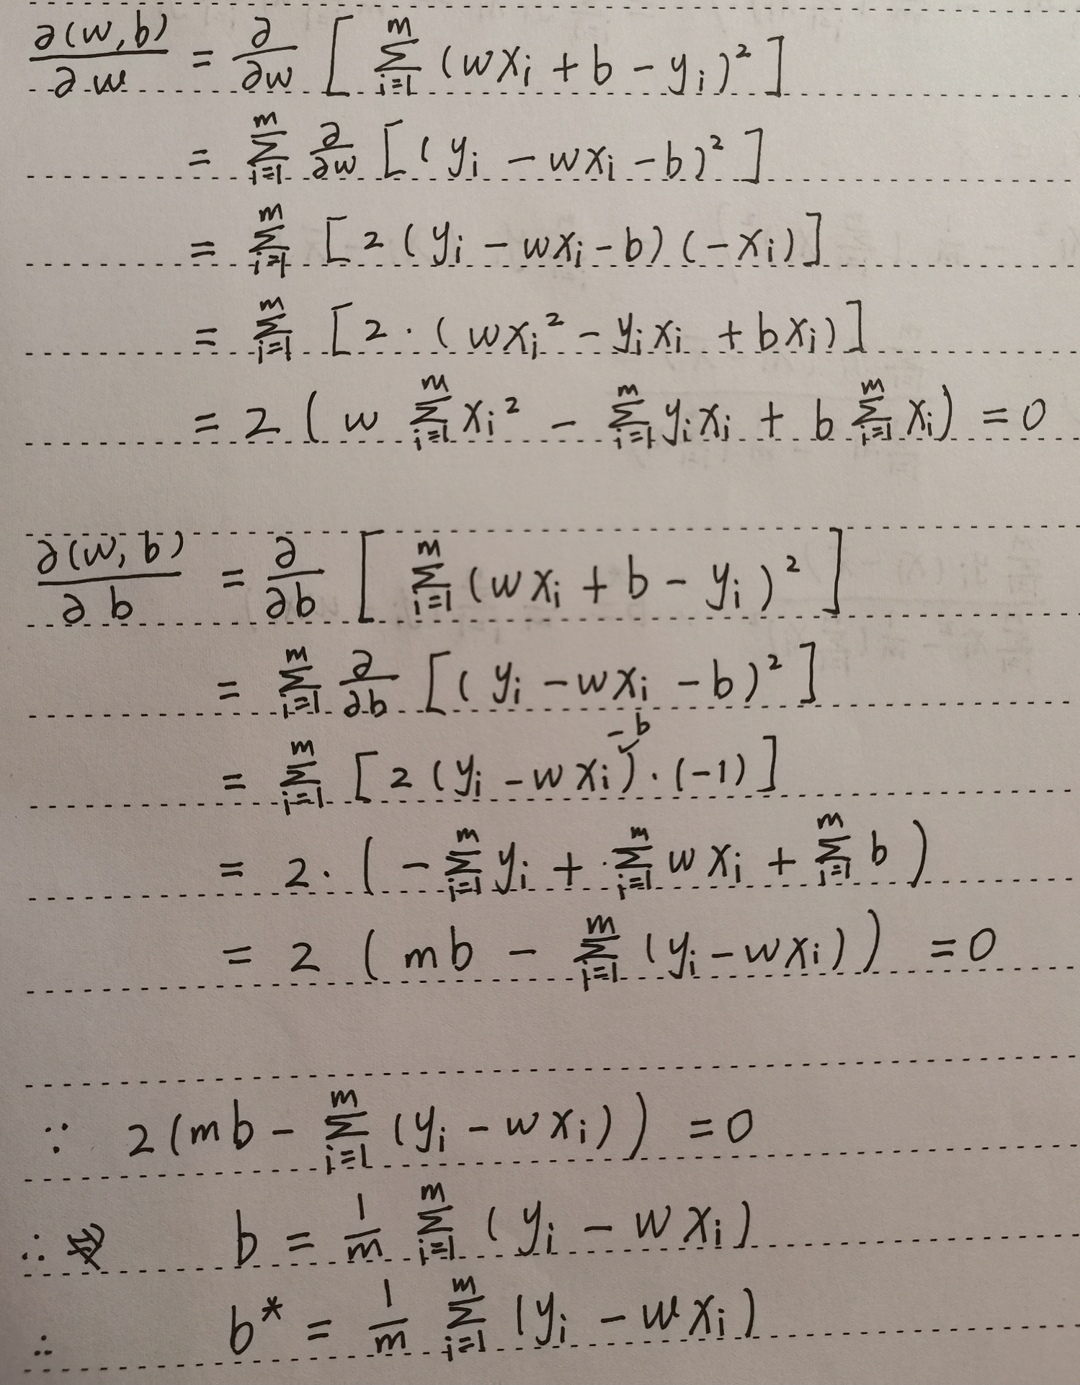 ∂(w,b)/∂w = ∂/∂w [ ∑_{i=1}^{m} (wx_i + b - y_i)² ]
= ∑_{i=1}^{m} ∂/∂w [(y_i - wx_i - b)²]
= ∑_{i=1}^{m} [2(y_i - wx_i - b)(-x_i)]
= ∑_{i=1}^{m} [2·(wx_i² - y_ix_i + bx_i)]
= 2(w ∑_{i=1}^{m} x_i² - ∑_{i=1}^{m} y_ix_i + b ∑_{i=1}^{m} x_i) = 0
∂(w,b)/∂b = ∂/∂b [ ∑_{i=1}^{m} (wx_i + b - y_i)² ]
= ∑_{i=1}^{m} ∂/∂b [(y_i - wx_i - b)²]
= ∑_{i=1}^{m} [2(y_i - wx_i - b)·(-1)]
= 2·(-∑_{i=1}^{m} y_i + ∑_{i=1}^{m} wx_i + ∑_{i=1}^{m} b)
= 2(mb - ∑_{i=1}^{m} (y_i - wx_i)) = 0
∵ 2(mb - ∑_{i=1}^{m} (y_i - wx_i)) = 0
∴ b = 1/m ∑_{i=1}^{m} (y_i - wx_i)
∴ b* = 1/m ∑_{i=1}^{m} (y_i - wx_i)